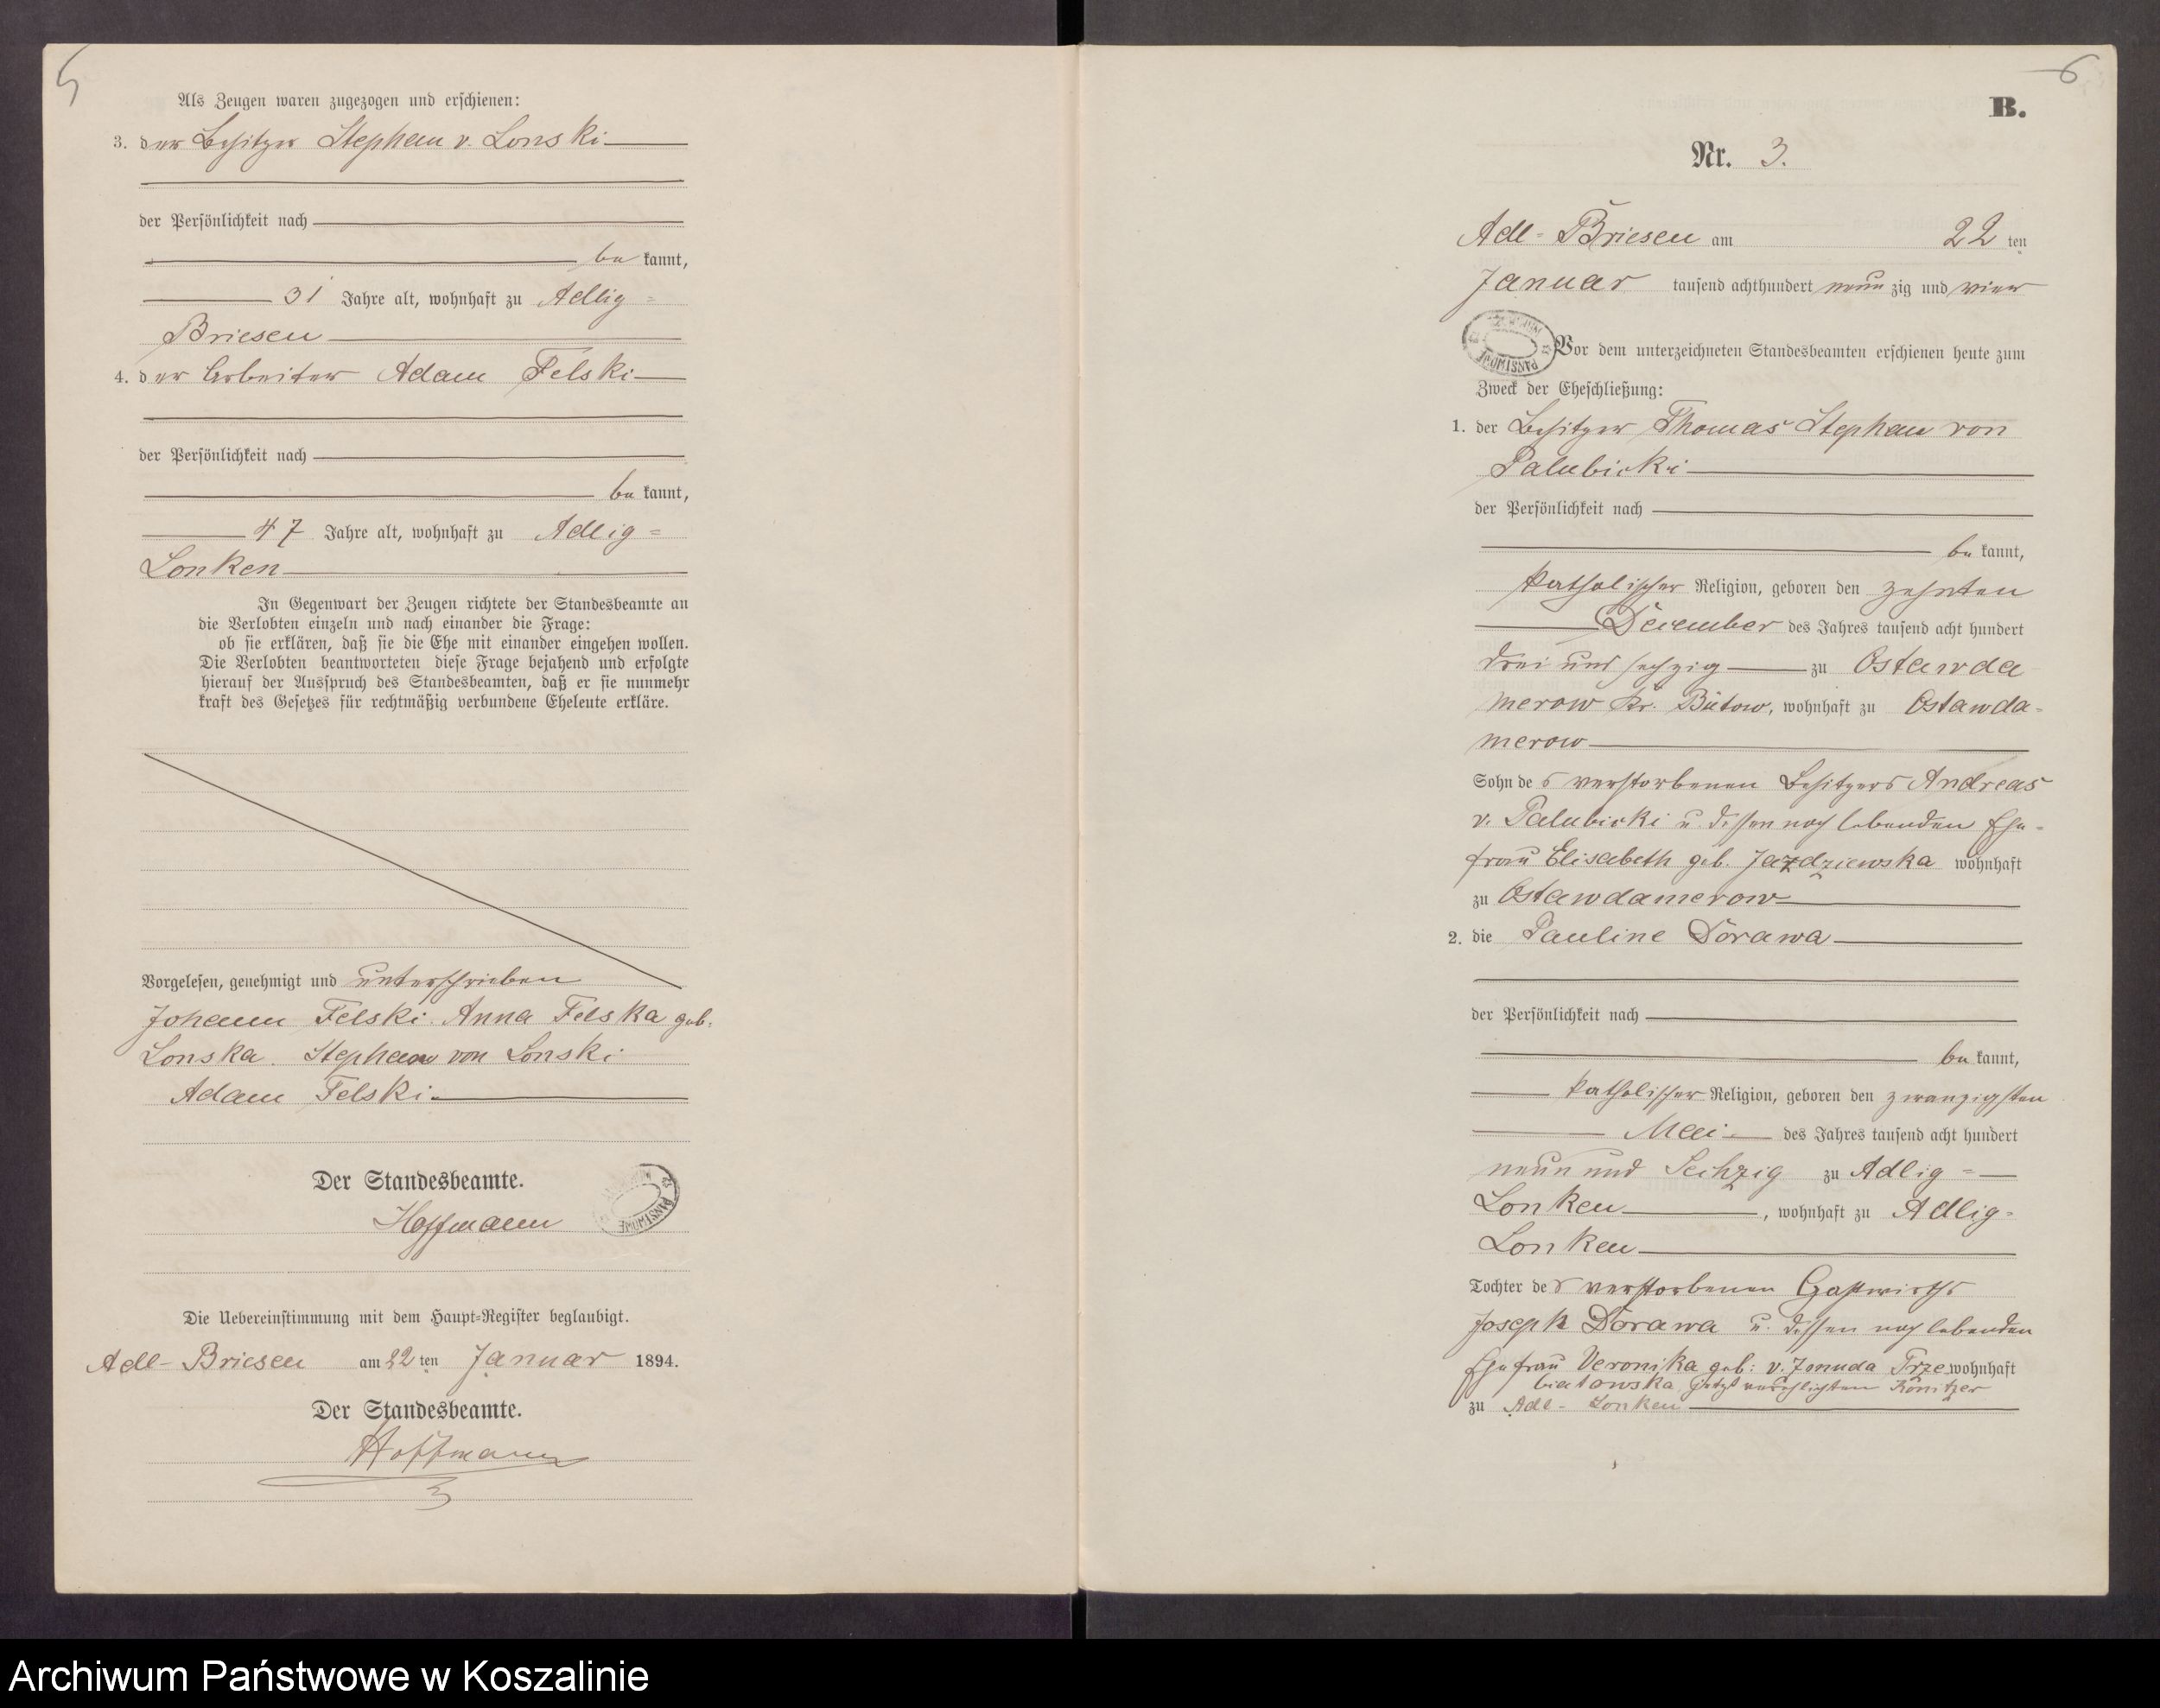 5
Als Zeugen waren zugezogen und erschienen:
3. der Besitzer Stephan v. Lonski
der Persönlichkeit nach
bekannt,
31 Jahre alt, wohnhaft zu Adlig-
Briesen
4. der Arbeiter Adam Felski
der Persönlichkeit nach
bekannt,
47 Jahre alt, wohnhaft zu Adlig-
Lonken
In Gegenwart der Zeugen richtete der Standesbeamte an
die Verlobten einzeln und nach einander die Frage:
ob sie erklären, daß sie die Ehe mit einander eingehen wollen.
Die Verlobten beantworteten diese Frage bejahend und erfolgte
hierauf der Ausspruch des Standesbeamten, daß er sie nunmehr
kraft des Gesetzes für rechtmäßig verbundene Eheleute erkläre.
Vorgelesen, genehmigt und unterschrieben
Johann Felski. Anna Felska geb.
Lonska. Stephan von Lonski
Adam Felski
Der Standesbeamte.
Hoffmann
Die Uebereinstimmung mit dem Haupt-Register beglaubigt.
Adl-Briesen am 22ten Januar 1894.
Der Standesbeamte.
Hoffmann
6
B.
Nr. 3.
Adl-Briesen am 22ten
Januar tausend achthundert neunzig und vier
Vor dem unterzeichneten Standesbeamten erschienen heute zum
Zweck der Eheschließung:
1. der Besitzer Thomas Stephan von
Palubicki
der Persönlichkeit nach
bekannt,
katholischer Religion, geboren den zehnten
December des Jahres tausend acht hundert
drei und sechzig zu Ostawda
merow Kr. Bütow, wohnhaft zu Ostawda-
merow
Sohn des verstorbenen Besitzers Andreas
v. Palubicki u. dessen noch lebenden Ehe-
frau Elisabeth geb. Jazdziewska wohnhaft
zu Ostawdamerow
2. die Pauline Dorawa
der Persönlichkeit nach
bekannt,
katholischer Religion, geboren den zwanzigsten
Mai des Jahres tausend acht hundert
neun und Sechzig zu Adlig-
Lonken, wohnhaft zu Adlig-
Lonken
Tochter des verstorbenen Gastwirths
Joseph Dorawa u. dessen noch lebenden
Ehefrau Veronika geb: v. Jmuda Trze wohnhaft
biatowska jetzt verehlichten Könitzer
zu Adl- Lonken
Archiwum Państwowe w Koszalinie